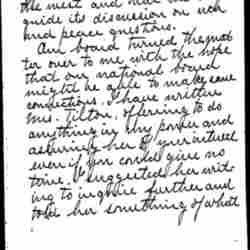 the meet and hear the
guide its discussion on such
kind peace questions.
Our board turned the mat
ter over to me with the hope
that our national board
might be able to make some
connections. I have written
Mrs. Tilton, offering to do
anything in my power and
assuring her of your interest
even if you could give no
time. I suggested her writ-
ing to inquire further and
told her something of what